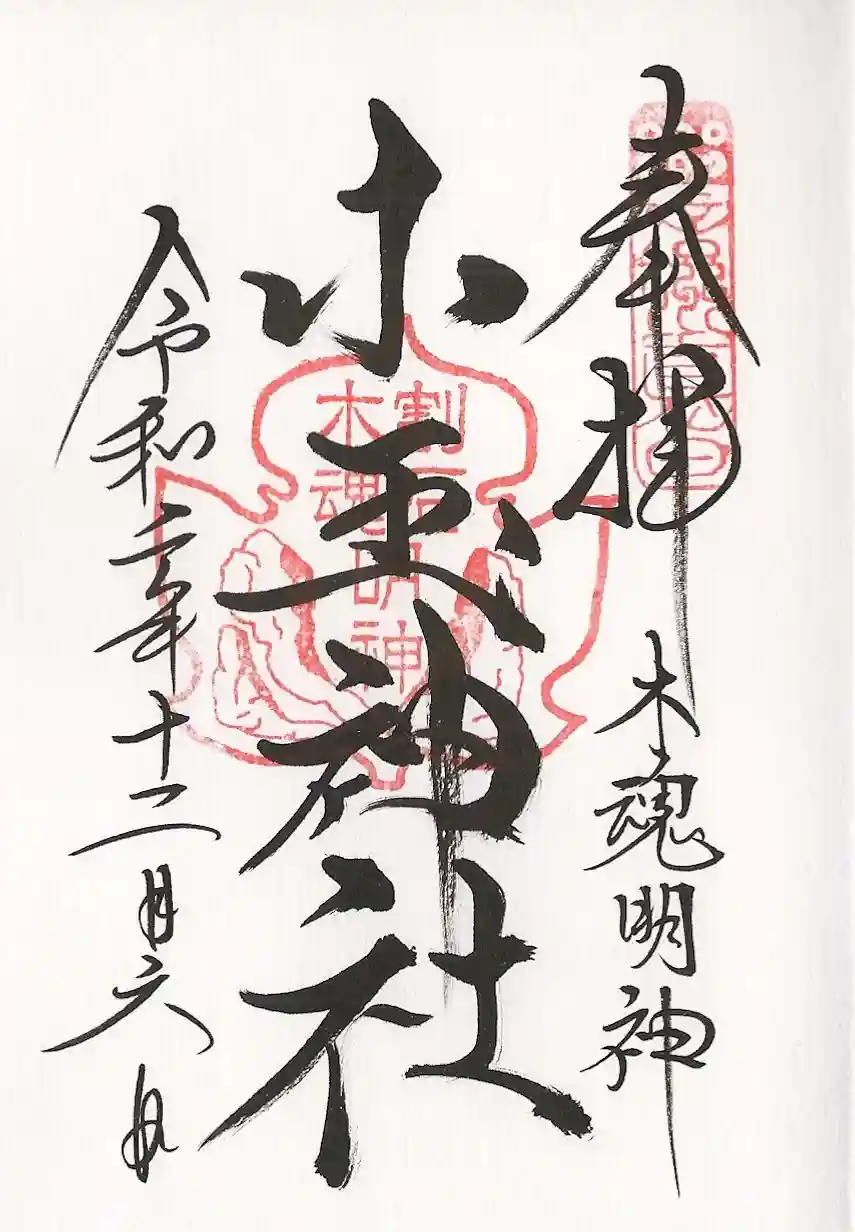 奉拝
木魂明神
木玉神社
割石
木魂
明神
令和二年十二月六日